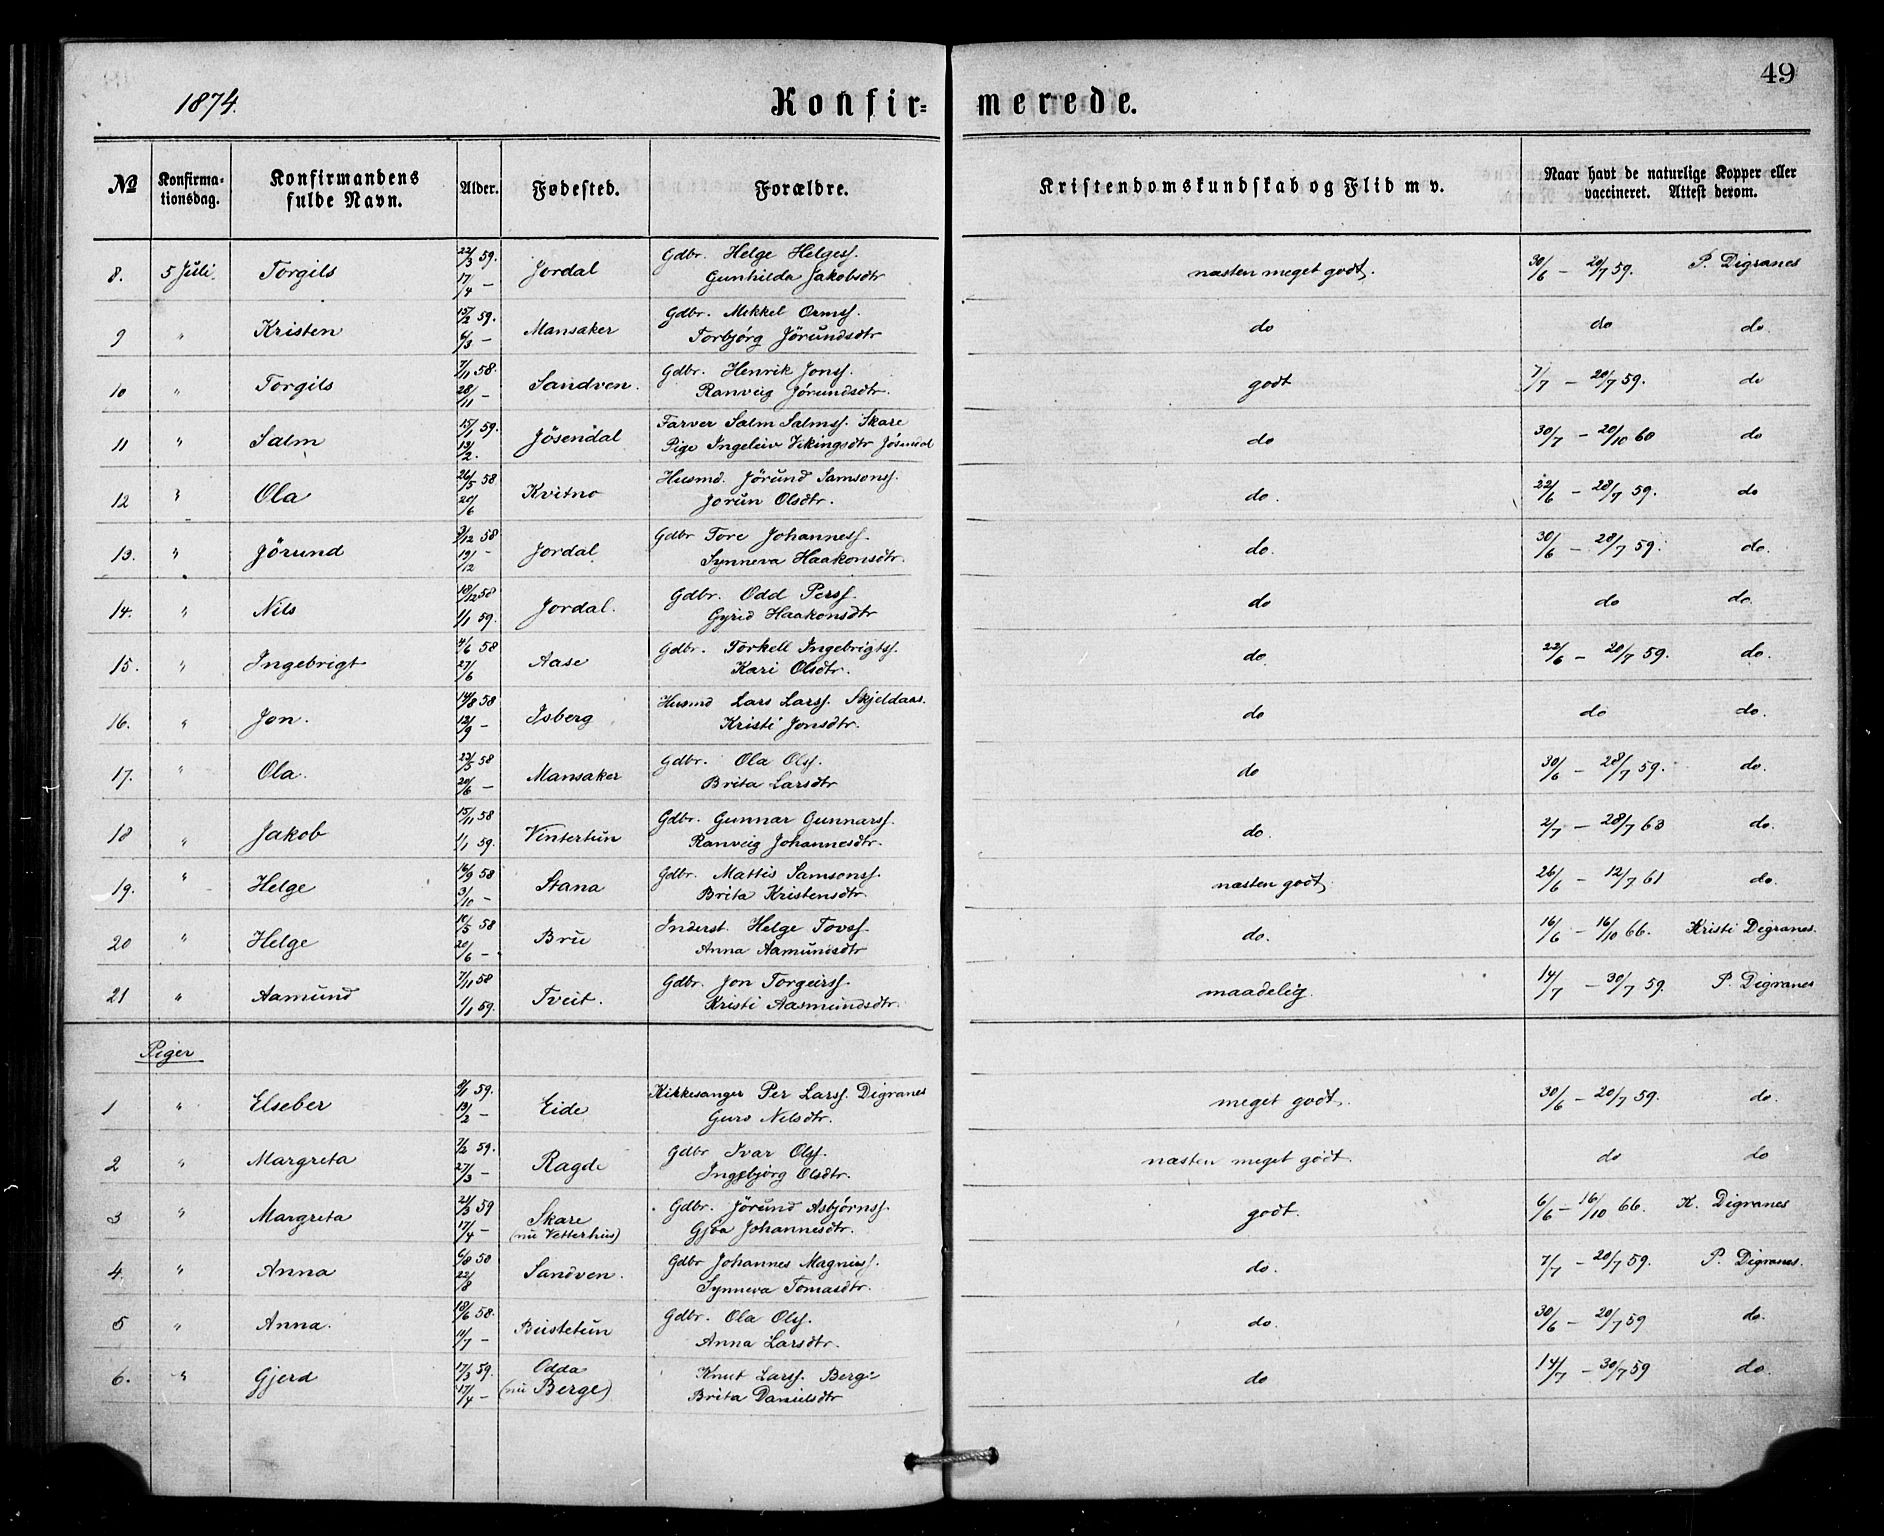 49
1874. Konfir- merede.
№ Konfirma-tionsdag. Konfirmandens fulde Navn. Alder. Fødested. Forældre. Kristendomskundskab og Flid m v. Naar havt de naturlige Kopper eller vaccineret. Attest derom.
8. 5 Juli Torgils 22/3 59. Jordal Gdbr. Helge Helgess. næsten meget godt. 30/6 – 20/7 59. P. Digranes
17/4 – Gunhilda Jakobsdtr
9 " Kristen 15/2 59. Mansaker Gdbr. Mikkel Ormss. do do do.
6/3 – Torbjørg Jörundsdtr
10 " Torgils 7/11 58. Sandven. Gdbr. Henrik Jonss. godt 7/7 – 20/7 59. do
28/11 – Ranveig Jörundsdtr.
11 " Salm 15/1 59. Jösendal Farver Salm Salmss. Skare do 30/7 – 20/10 60 do
12/2. Pige Ingeleiv Vikingsdtr Jösendal
12 " Ola 26/5 58 Kvitno Husmd. Jörund Samsonss. do. 22/6 – 28/7 59. do
20/6 Jorun Olsdtr.
13. " Jörund 3/12 58 Jordal Gdbr Tore Johanness. do. 30/6 – 28/7 59. do.
19/12 – Synneva Haakonsdtr.
14. " Nils 18/12 58 Jordal. Gdbr. Odd Perss. do do do.
1/1 59. Gyrid Haakonsdtr
15. " Ingebrigt 4/6 58 Aase Gdbr. Torkell Ingebrigtss. do 22/6 – 20/7 59. do.
27/6 Kari Olsdtr.
16. " Jon. 14/8 58 Isberg Husmd Lars Larss. Skjeldaas. do do do.
12/9 – Kristi Jonsdtr.
17. " Ola. 22/5 58 Mansaker Gdbr. Ola Olss. do 30/6 – 28/7 59. do.
20/6 – Brita Larsdtr
18 " Jakob 15/11 58 Vintertun Gdbr. Gunnar Gunnarss. do. 2/7 – 28/7 63 do.
1/1 59. Ranveig Johannesdtr.
19. " Helge 16/9 58 Stana Gdbr. Mattis Samsonss. næsten godt 26/6 – 12/7 61 do.
3/10 – Brita Kristensdtr.
20 " Helge 10/5 58 Bru Inderst. Helge Tovss. do. 16/6 – 16/10 66. Kristi Digranes.
20/6 – Anna Aamundsdtr
21 " Aamund 7/11 58 Tveit. Gdbr. Jon Torgeirss. maadelig. 14/7 – 30/7 59. P. Digranes
1/1 59. Kristi Aasmundsdtr.
Piger
1 " Elseber 9/1 59. Eide Kirkesanger Per Larss. Digranes meget godt. 30/6 – 20/7 59. do.
13/2 – Guro Nilsdtr.
2 " Margreta 7/2 59. Ragde Gdbr Ivar Olss. næsten meget godt. do do
27/3 – Ingebjørg Olsdtr.
3 " Margreta 21/3 59 Skare Gdbr. Jörund Asbjørnss. godt. 6/6 – 16/10 66. K. Digranes
17/4 – (nu Vetterhus) Gjöa Johannesdtr.
4. " Anna 6/8 58 Sandven. Gdbr Johannes Magnuss. do. 7/7 – 20/7 59. P. Digranes.
22/8 Synneva Tomasdtr.
5 " Anna. 18/6 58. Bustetun Gdbr. Ola Olss. do. 30/6 – 20/7 59 do.
11/7 – Anna Larsdtr.
6. " Gjerd 17/3 59. Odda Knut Larss. Berge do 14/7 – 30/7 59 do.
17/4 – (nu Berge) Brita Danielsdtr